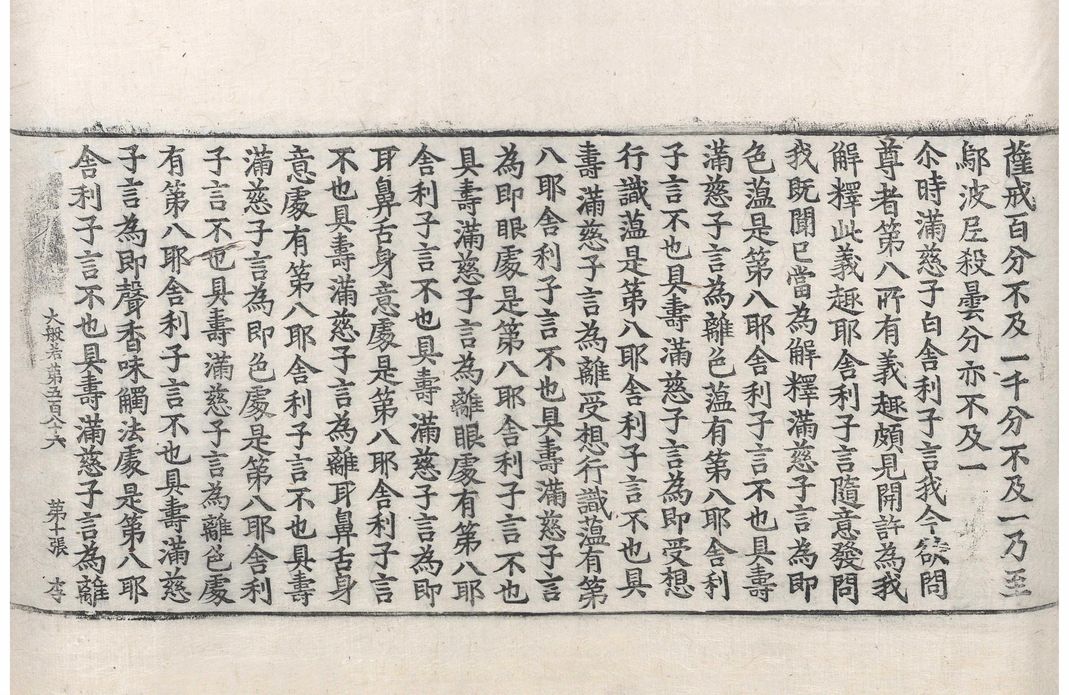 薩戒百分不及一千分不及一乃至
鄔波尼殺曇分亦不及一
尒時滿慈子白舍利子言我今欲問
尊者第八所有義趣頗見開許為我
解釋此義趣耶舍利子言隨意發問
我既聞已當為解釋滿慈子言為即
色薀是第八耶舍利子言不也具壽
滿慈子言為離色薀有第八耶舍利
子言不也具壽滿慈子言為即受想
行識薀是第八耶舍利子言不也具
壽滿慈子言為離受想行識薀有第
八耶舍利子言不也具壽滿慈子言
為即眼處是第八耶舍利子言不也
具壽滿慈子言為離眼處有第八耶
舍利子言不也具壽滿慈子言為即
耳鼻舌身意處是第八耶舍利子言
不也具壽滿慈子言為離耳鼻舌身
意處有第八耶舍利子言不也具壽
滿慈子言為即色處是第八耶舍利
子言不也具壽滿慈子言為離色處
有第八耶舍利子言不也具壽滿慈
子言為即聲香味觸法處是第八耶
舍利子言不也具壽滿慈子言為離
大般若第五百八十六 第十張 李